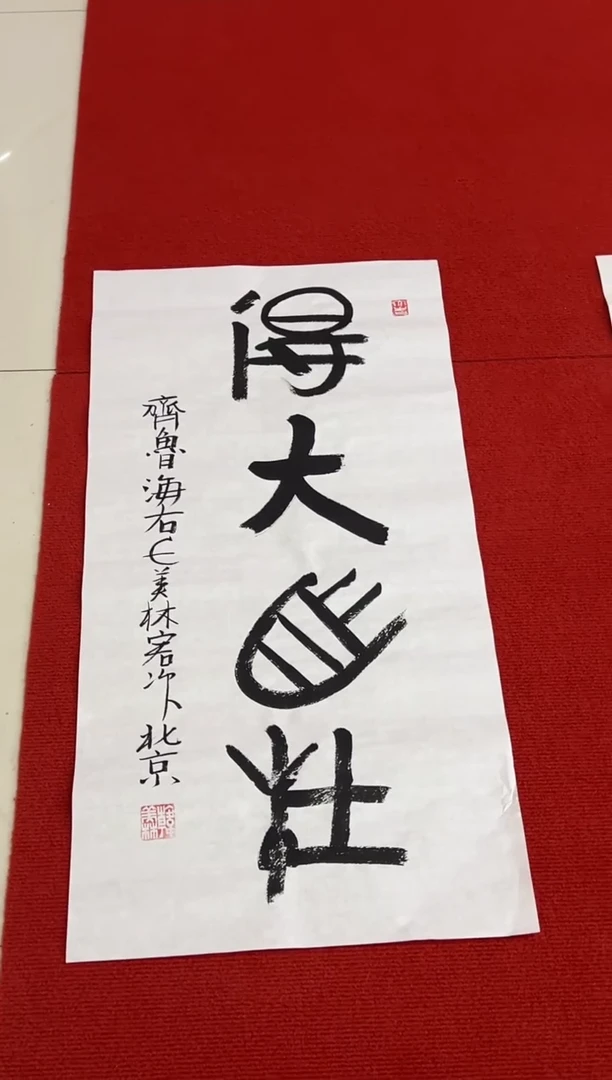 得大自在
齊魯海右美林客次北京